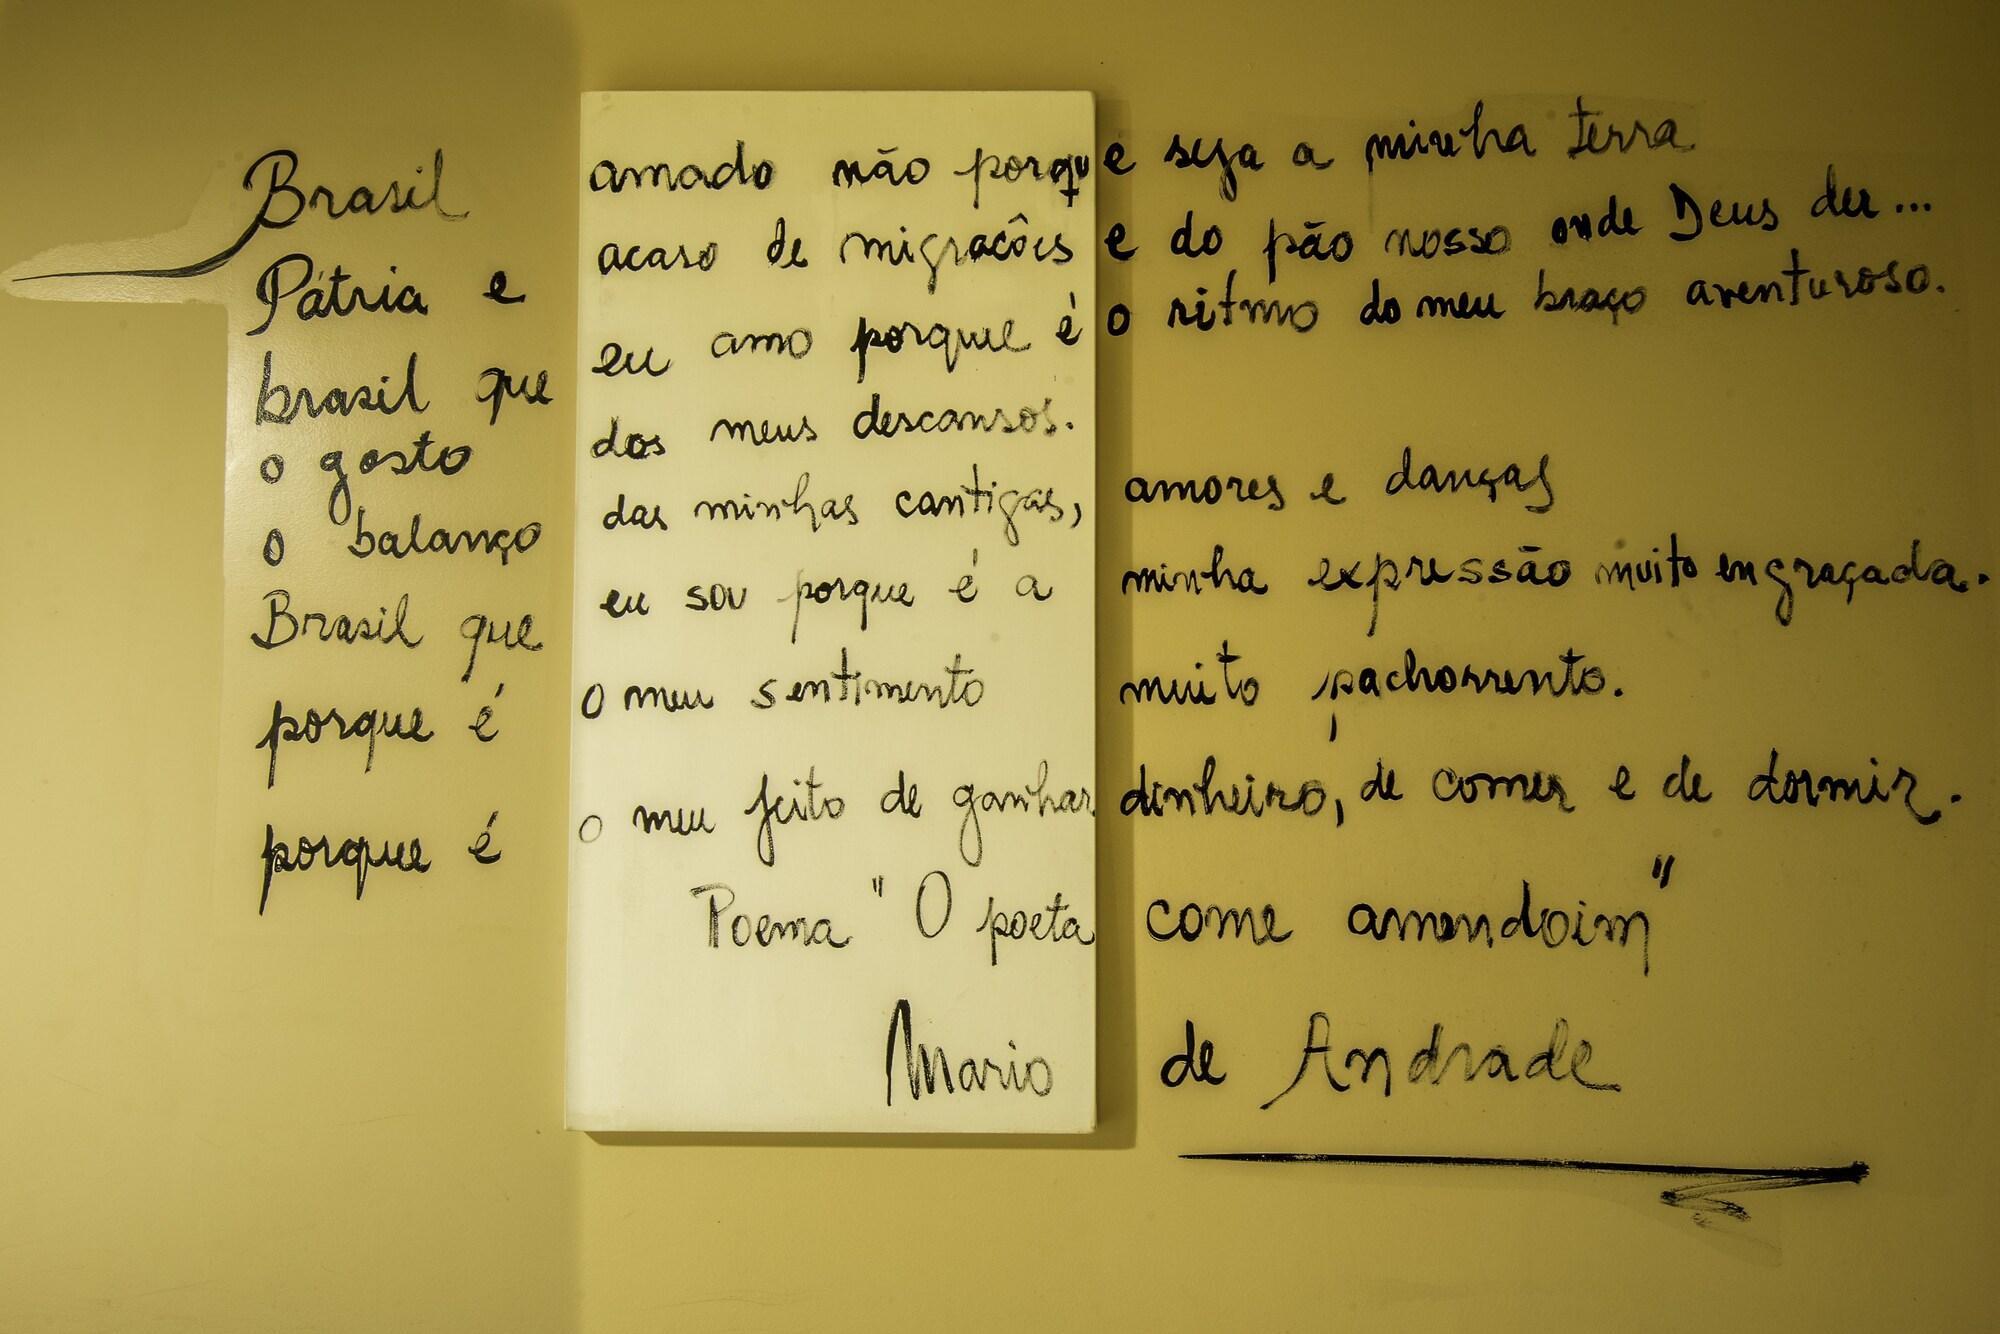 Brasil amado não porque seja a minha terra
Pátria e acaso de migracões e do pão nosso onde Deus der...
brasil que eu amo porque é o ritmo do meu braço aventuroso.
o gosto dos meus descansos.
o balanço das minhas cantigas, amores e danças
Brasil que eu sou porque é a minha expressão muito engraçada.
porque é o meu sentimento muito pachorrento.
porque é o meu jeito de ganhar dinheiro, de comer e de dormir.
Poema "O poeta come amendoim"
Mario de Andrade